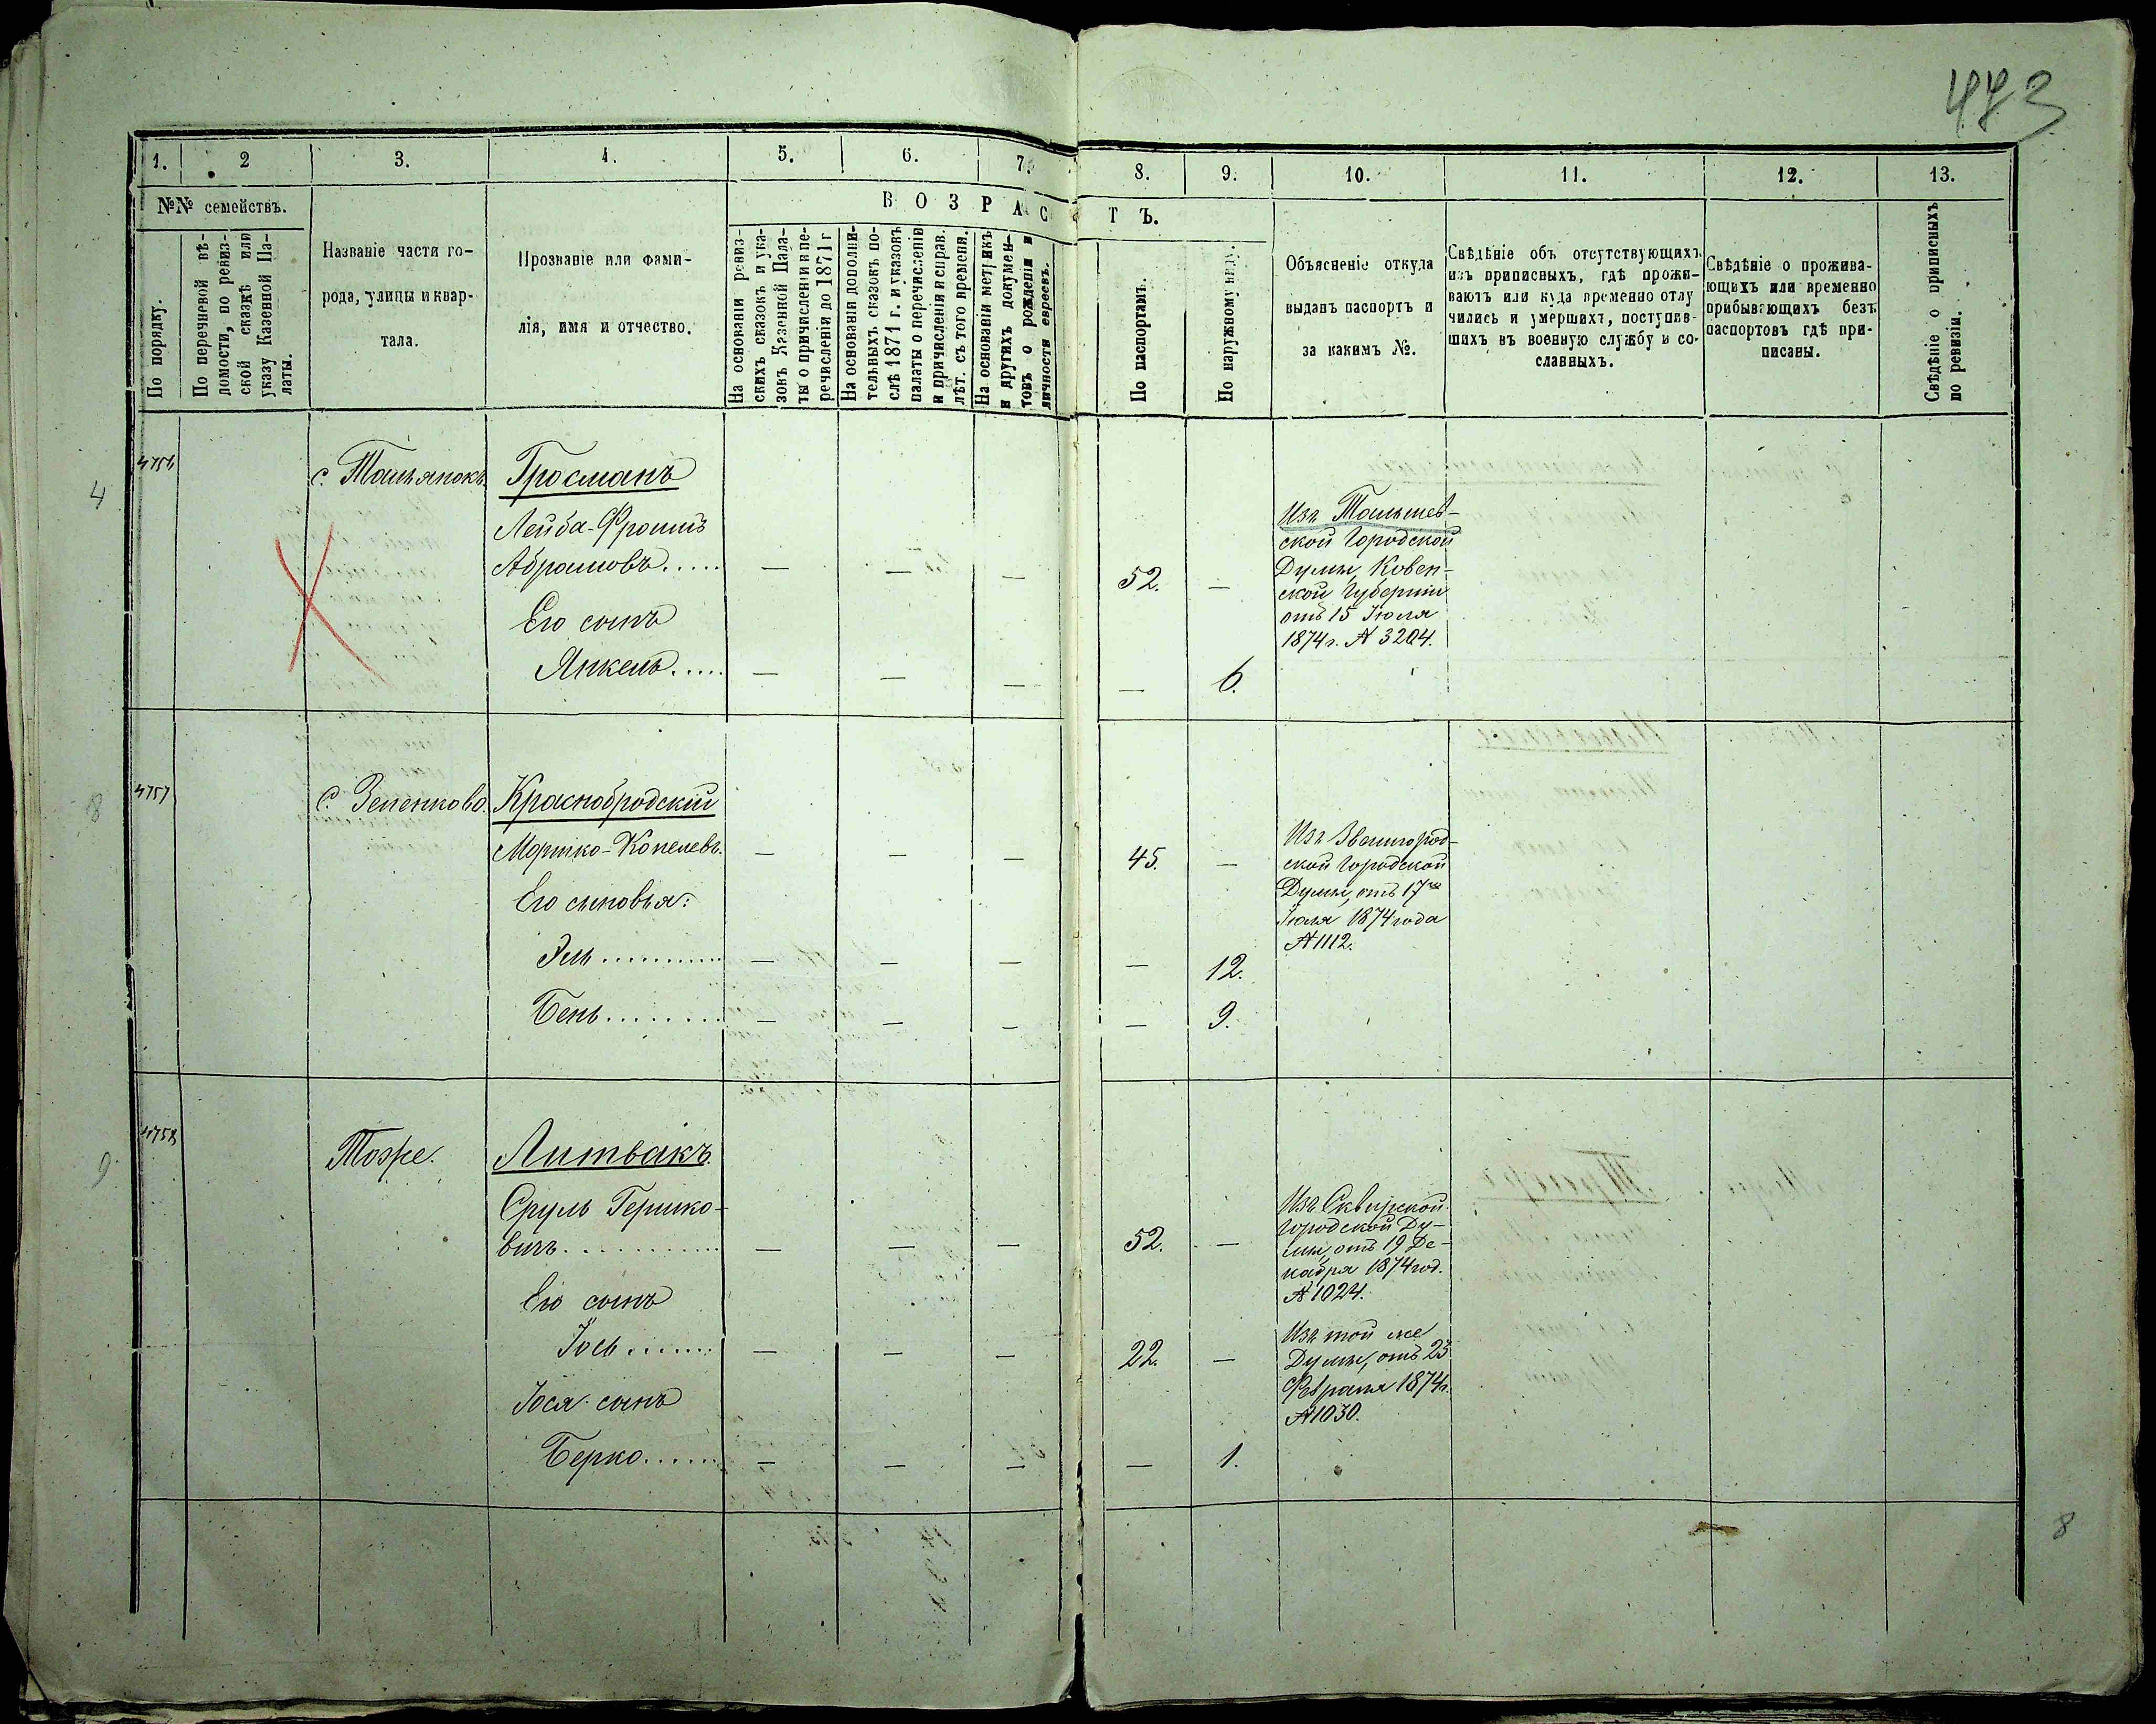 473
1.
2
3.
4.
5.
6.
7.
8.
9.
10.
11.
12.
13.
№№ семействъ.
По порядку.
По перечневой вѣ-
домости, по ревиз-
ской сказкѣ или
указу Казенной Па-
латы.
Названіе части го-
рода, улицы и квар-
тала.
Прозваніе или фами-
лія, имя и отчество.
ВОЗРАСТЪ.
На основаніи ревиз-
скихъ сказокъ и ука-
зокъ Казенной Пала-
ты о причисленіи и пе-
речисленіи до 1871 г
На основаніи дополни-
тельныхъ сказокъ по-
слѣ 1871 г. и указовъ
палаты о перечисленіи
и причисленіи и справ.
лѣт. съ того времени.
На основаніи метрикъ
и другихъ докумен-
товъ о рожденіи и
личности евреевъ.
По паспортамъ.
По наружному виду.
Объясненіе откуда
выданъ паспортъ и
за какимъ №.
Свѣдѣніе объ отсутствующихъ
изъ приписныхъ, гдѣ прожи-
ваютъ или куда временно отлу
чились и умершихъ, поступив-
шихъ въ военную службу и со-
сланныхъ.
Свѣдѣніе о прожива-
ющихъ или временно
прибывающихъ безъ
паспортовъ гдѣ при-
писаны.
Свѣдѣніе о приписныхъ
по ревизіи.
4
4756
с. Тальянокъ.
Гросманъ
Лейба-Фроимъ
Абрамовъ..... — — — 52. —
Изъ Тальшев-
ской Городской
Думы, Ковен-
ской Губерніи
отъ 15 Іюля
1874 г. № 3204.
Его сынъ
Янкель..... — — — — 6.
8
4757
С. Зеленково.
Краснобродскій
Мортко-Копелевъ. — — — 45. —
Изъ Звенигород-
ской Городской
Думы, отъ 17го
Іюля 1874 года
№ 1112.
Его сыновья:
Эль........... — — — — 12.
Бень........ — — — — 9.
9
4758
Тоже.
Литвакъ.
Сруль Гершко-
вичъ............ — — — 52. —
Изъ Сквирской
Городской Ду-
мы, отъ 19 Де-
кабря 1874 год.
№ 1024.
Его сынъ
Іось....... — — — 22. —
Изъ той же
Думы, отъ 23
Февраля 1874 г.
№ 1030.
Іося сынъ
Берко...... — — — — 1.
8